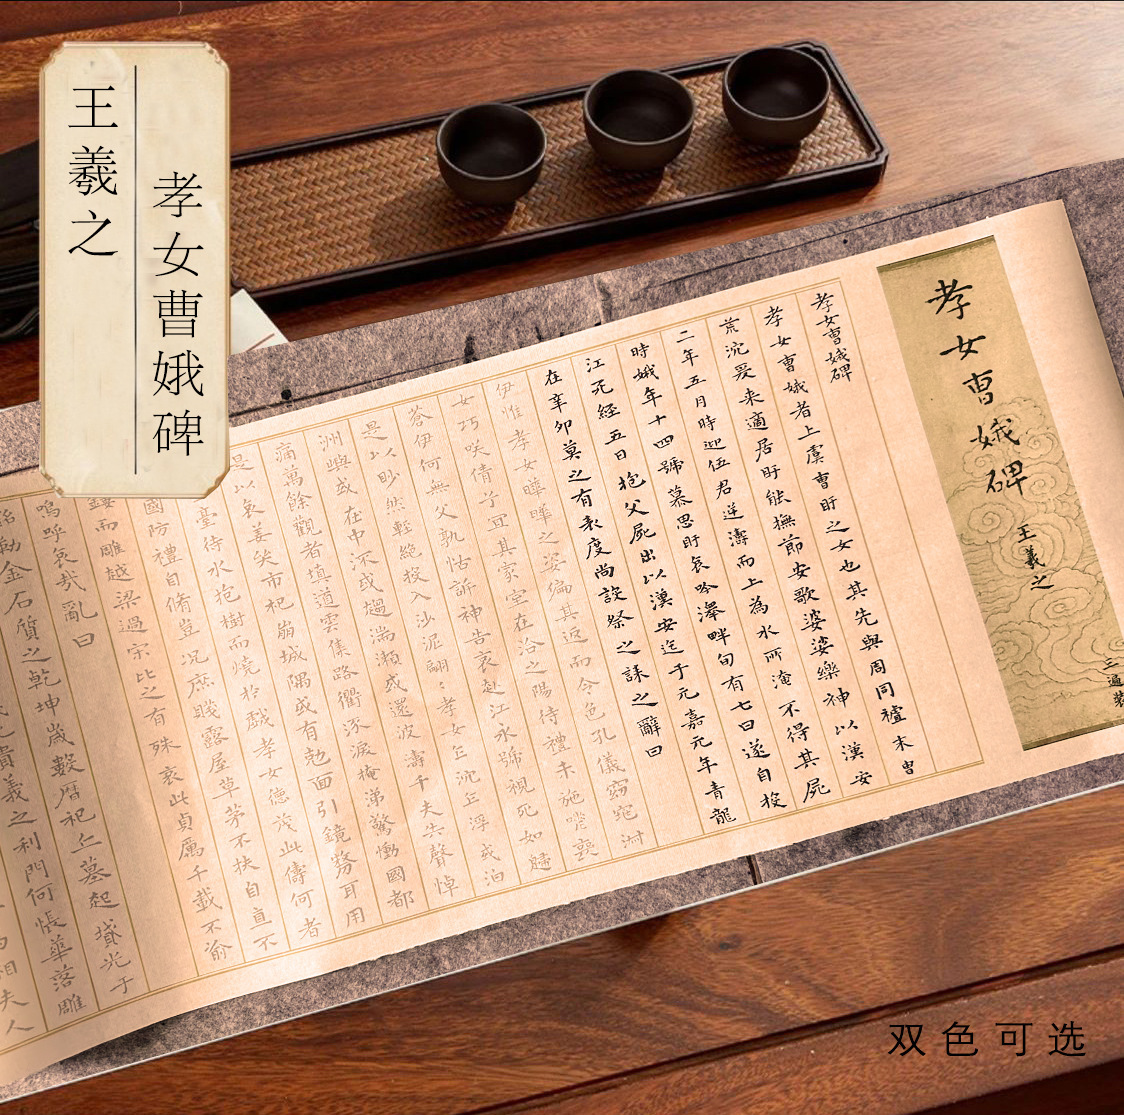 孝女曹娥碑
王羲之
孝女曹娥碑
王羲之
孝女曹娥碑
孝女曹娥者上虞曹盱之女也其先與周同祖末胄
荒沉爰来適居盱能撫節安歌婆娑樂神以漢安
二年五月時迎伍君逆濤而上為水所淹不得其屍
時娥年十四號慕思盱哀吟澤畔旬有七日遂自投
江死經五日抱父屍出以漢安迄于元嘉元年青龍
在辛卯莫之有表度尚設祭之誄之辭曰
伊惟孝女曄曄之姿偏其返而令色孔儀窈窕淑
女巧咲倩兮宜其家室在洽之陽待禮未施嗟喪
蒼伊何無父孰怙訴神告哀赴江永號視死如歸
是以眇然輕絕投入沙泥翩〻孝女乍沉乍浮或泊
洲嶼或在中流或趨湍瀨或還波濤千夫失聲悼
痛萬餘觀者填道雲集路衢泳淚掩涕驚慟國都
是以哀姜哭市杞崩城隅或有勉面引鏡剺耳用
臺待水抱樹而燒於戲孝女德茂此儔何者
國防禮自脩豈況庶賤露屋草茅不扶自直不
鏤而雕越梁過宋比之有殊哀此貞厲千載不渝
嗚呼哀哉亂曰
銘勒金石質之乾坤歲數曆祀丘墓起墳光于
貴義之利門何悵華落雕
相夫人
双色可选